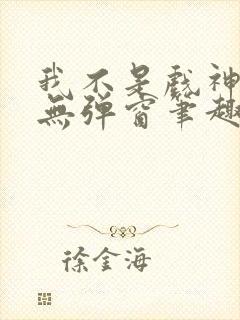 我不是戲神
無彈窗筆趣
徐金海